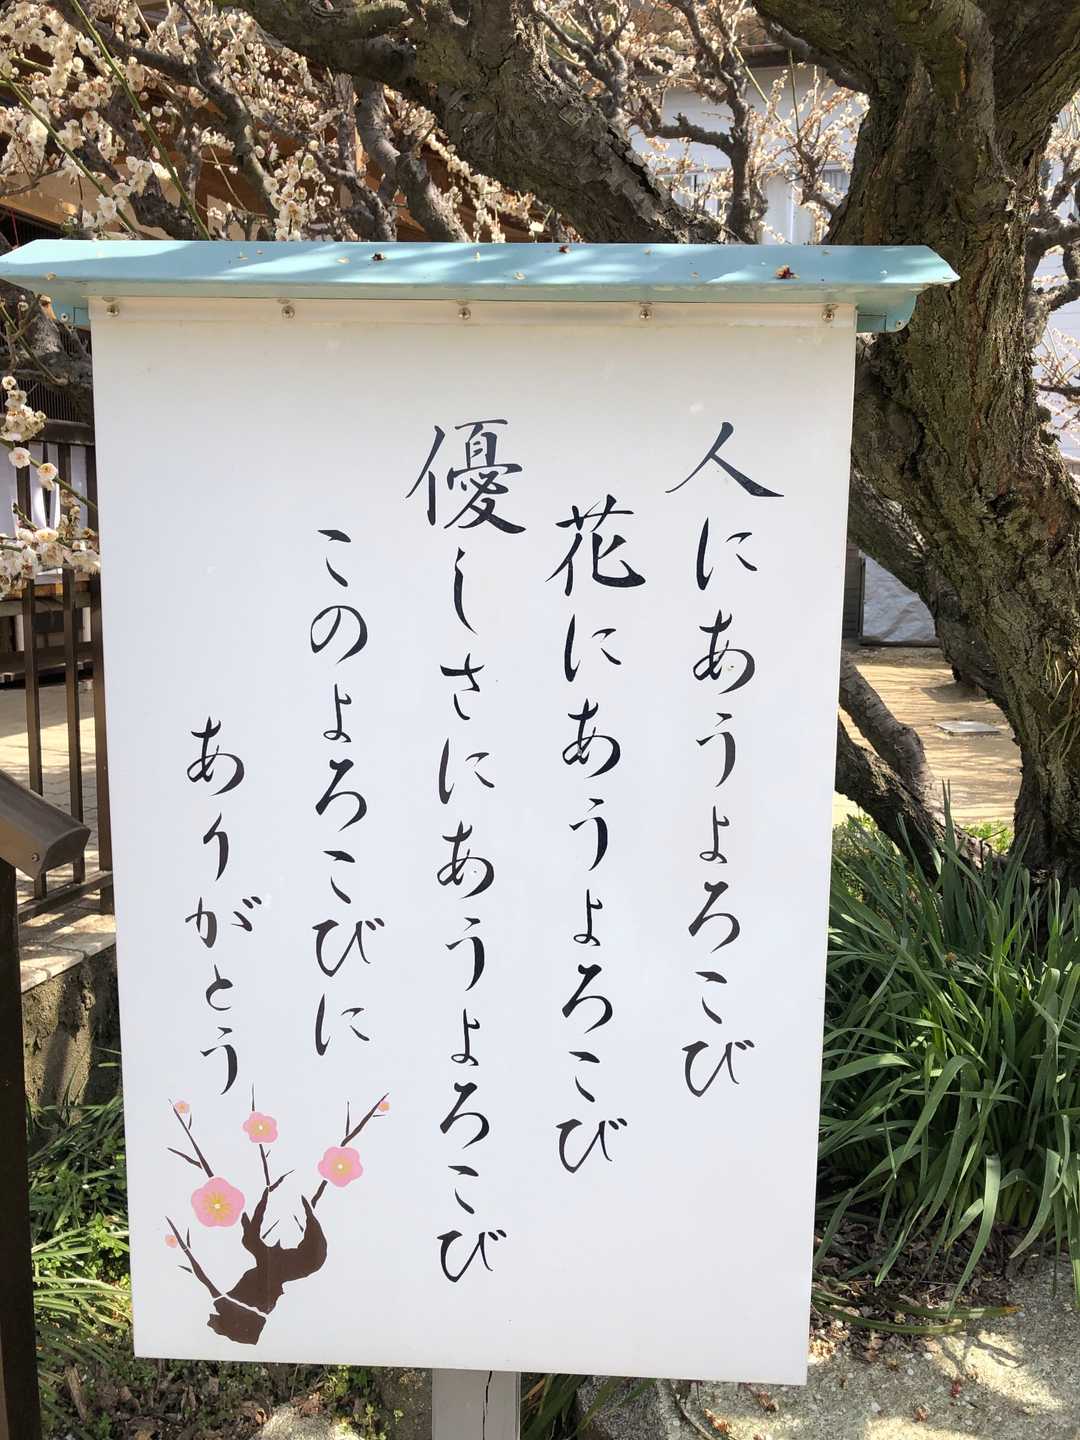 人にあうよろこび
花にあうよろこび
優しさにあうよろこび
このよろこびに
ありがとう